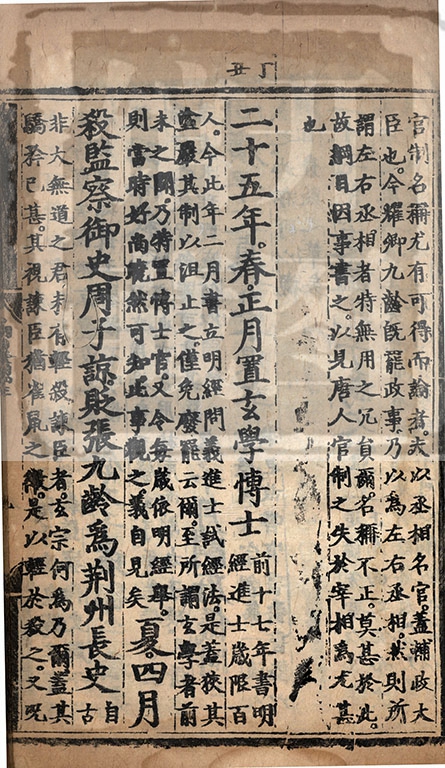 丁丑
官制名稱尤有可得而論者。夫以丞相名官。蓋輔政大
臣也。今耀卿九齡旣罷政事乃以爲左右丞相。然則所
謂左右丞相者特無用之冗員爾。名稱不正。莫甚於此。
故綱目因事書之。以見唐人官制之失於宰相爲尤甚
也
二十五年。春。正月置玄學博士
前十七年書明
經進士歲限百
人。今此年二月書立明經問義進士試經法。是蓋狹其
塗嚴其制以沮止之。僅免廢罷云爾。至所謂玄學者前
未之聞。乃特置博士官又令每歲依明經舉。
則當時好尚曉然可知。比事觀之義自見矣
夏。四月
殺監察御史周子諒。貶張九齡爲荆州長史
自
古
非大無道之君未有輕殺諫臣者。玄宗何爲乃爾蓋其
驕矜已甚。其視諫臣猶雀鼠之 是以輕於殺之。又況